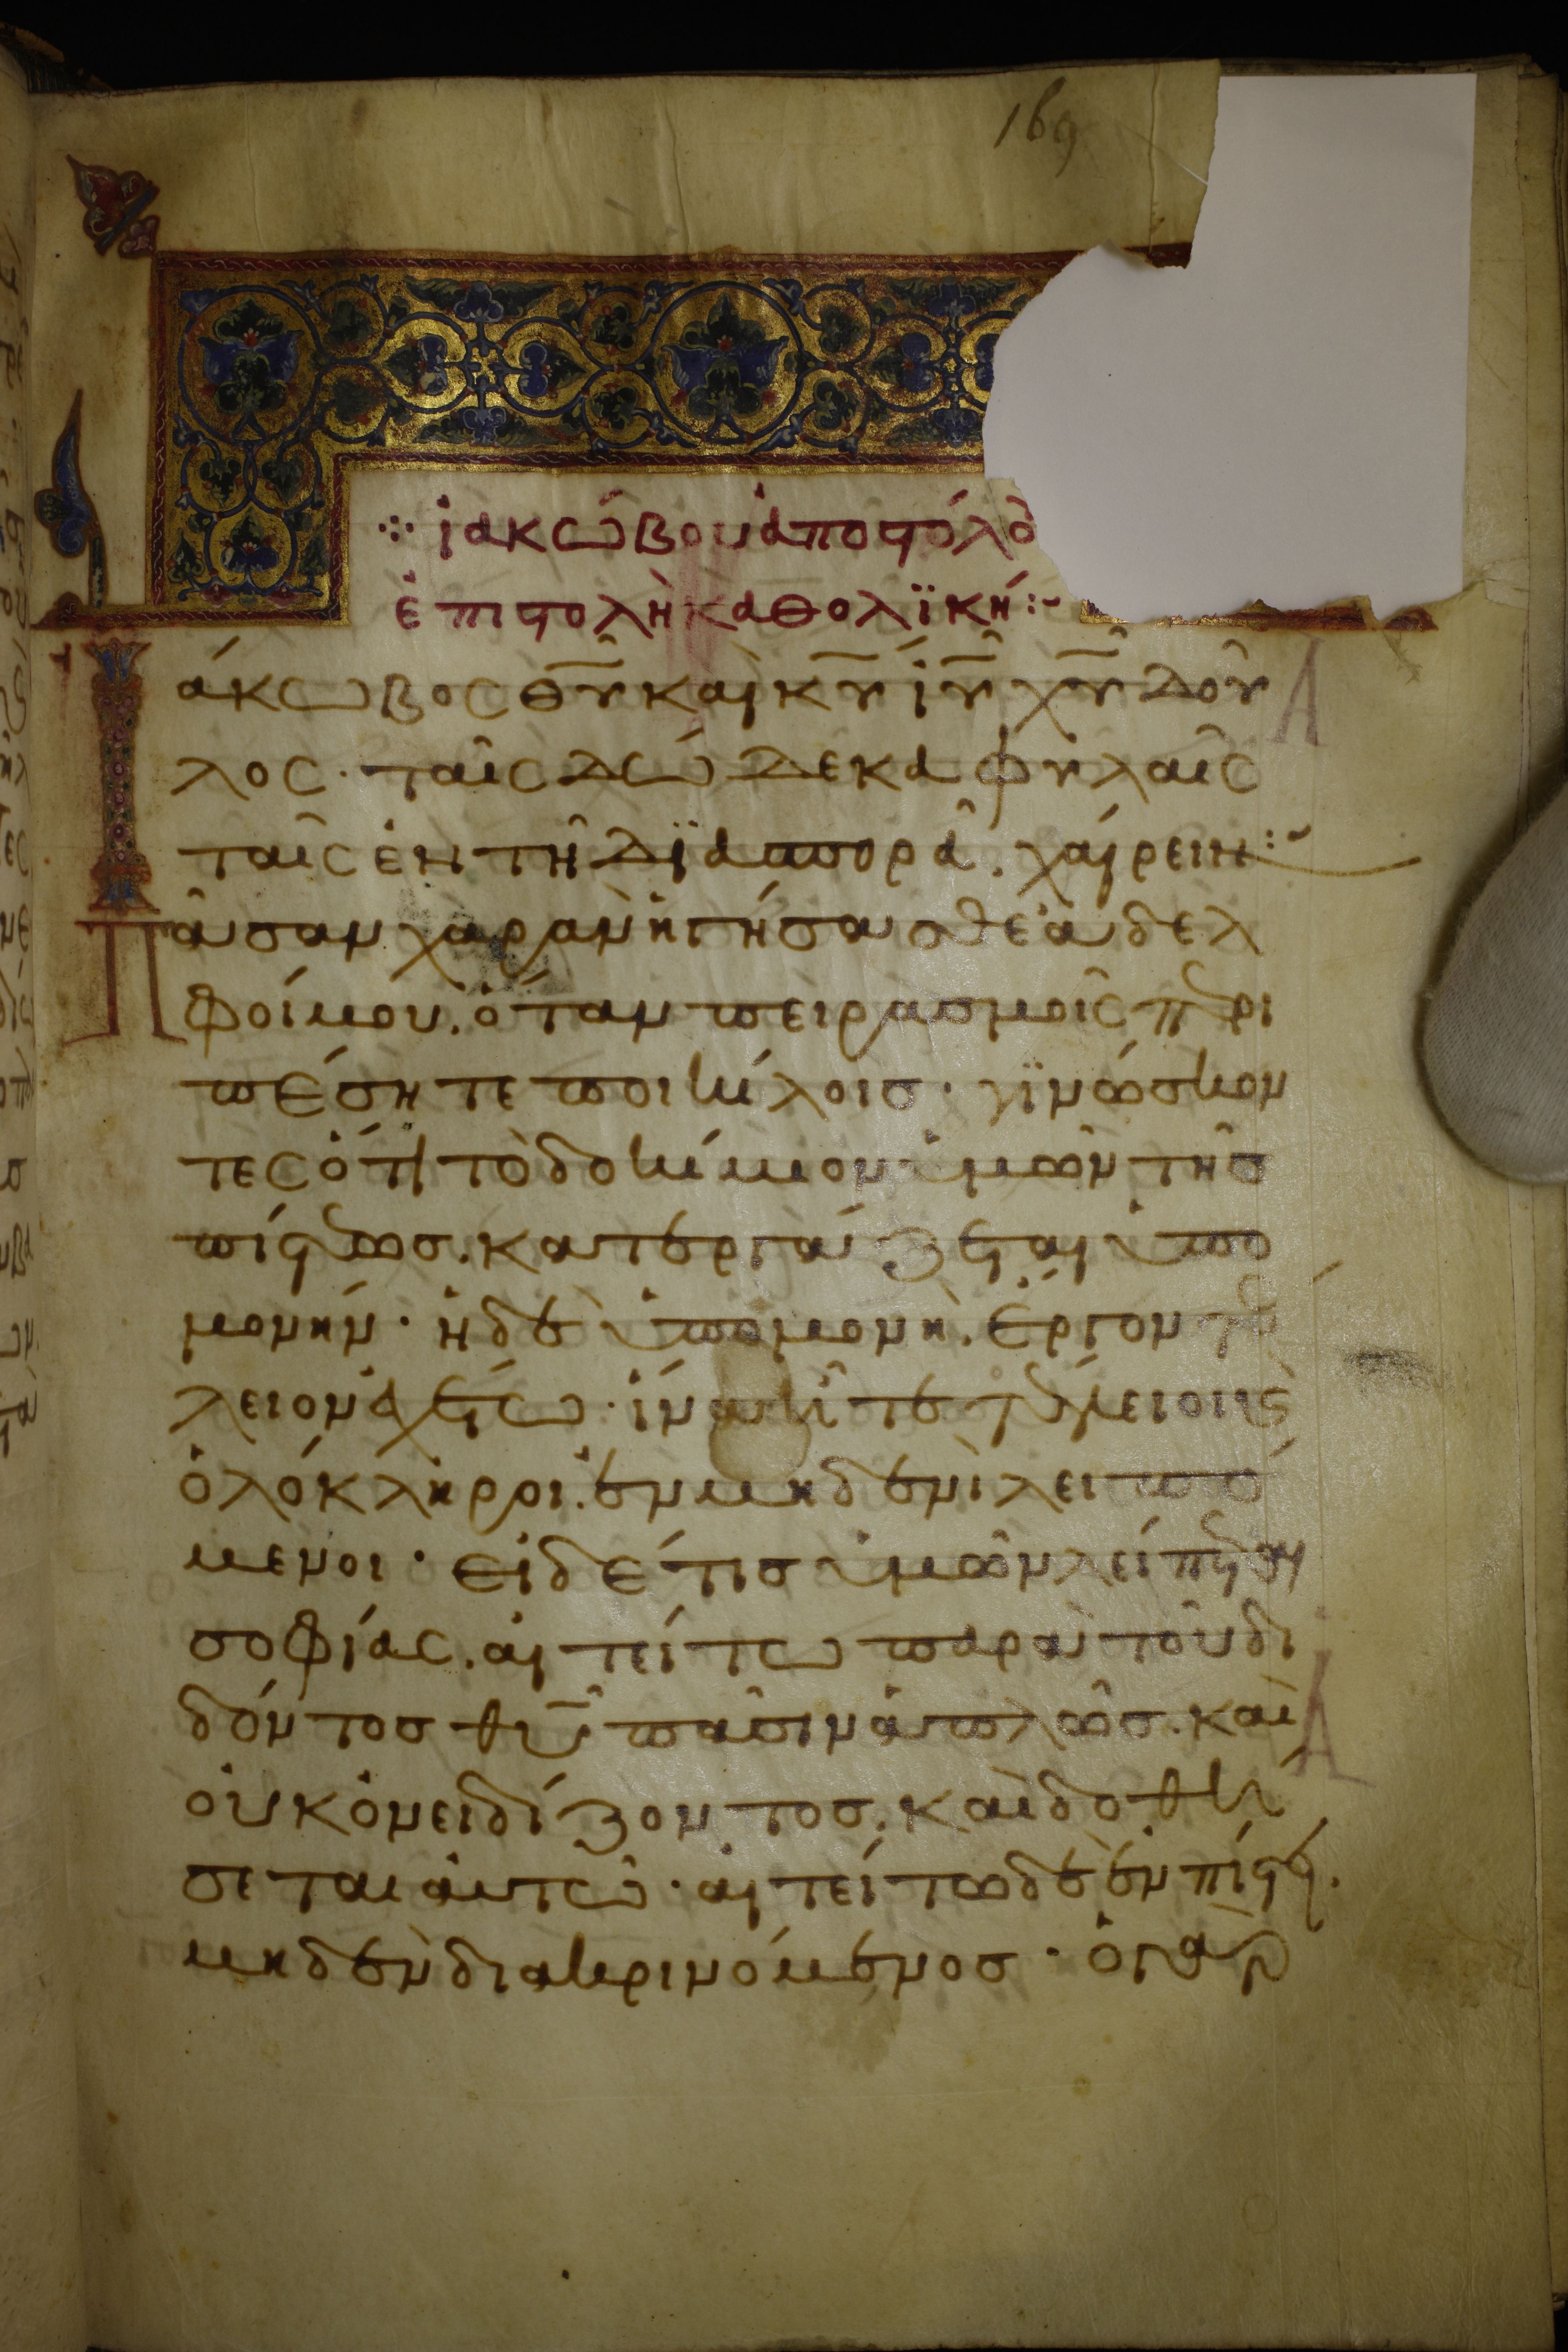 169
ἰακώβου ἀποστόλο
ἐπιστολὴ καθολϊκή:~
Ἰάκωβος θ̅υ̅ καὶ κ̅υ̅ ἰ̅υ̅ χ̅υ̅ δοῦ
λος· ταῖς δώδεκα φυλαῖς
ταῖς ἐν τῆ δϊασπορᾶ. χαίρειν:~
Πᾶσαν χαρὰν ἡγήσασθε ἀδελ
φοί μου. ὅταν πειρασμοῖς περι
πέσητε ποικίλοις· γϊνώσκον
τες ὅτι τὸ δοκίμιον ὑμῶν τῆς
πίστεως. κατεργάζεται ὑπο
μονήν· ἡ δὲ ὑπομονὴ. ἔργον τέ
λειον ἐχέτω· ἵνα ἦτε τέλειοι κ(αὶ)
ὁλόκληροι. ἐν μηδενὶ λειπό
μενοι· εἰ δέ τις ὑμῶν λείπεται
σοφίας. αἰτείτω παρὰ τοῦ δι
δόντος θ̅υ̅ πᾶσιν ἁπλῶς. καὶ
οὐκ ὀνειδίζοντος. καὶ δοθή
σεται αὐτῶ· αἰτείτω δὲ ἐν πίστει.
μηδὲν διακρινόμενος· ὁ γὰρ